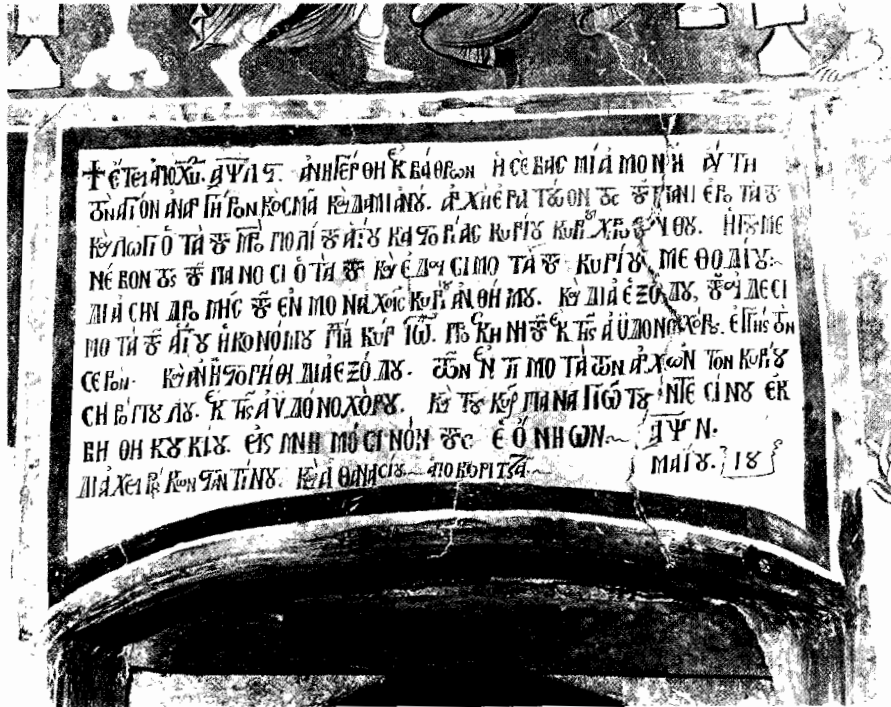 ✝ ἔτει ἀπὸ Χ͞υ. ͵αψλς. ἀνηγέρθη ἐκ βάθρων ἡ σεβασμία μονὴ αὕτη
τῶν ἁγίον ἀναργήρων κοσμὰ κὲ δαμιανοῦ. ἀρχηερατέβοντος τοῦ πανιεροτάτου
κὲ λωγιοτάτου μητροπολίτου ἁγίου καστορίας κυρίου κυρίου χρυσάνθου. ἡγουμε
νέβοντος τοῦ πανοσιοτάτου κὲ ἐδεσιμοτάτου κυρίου μεθοδίου
διὰ σηνδρομῆς τοῦ ἐν μοναχοῖς κυροῦ ἀνθήμου. κὲ διὰ ἐξόδου, τοῦ ἐδεσι
μοτάτου ἁγίου ἠκονόμου παπᾶ κὺρ ἰω. προσκηνητοῦ ἐκ τῆς ἀϋδονοχόρου. ἐπὶ τῆς τῶν
σερων. κὲ ἀνηστορήθι διὰ ἐξόδου. τῶν ἐντιμοτάτων ἀρχών τον κυρίου
σηροπούλου. ἐκ τῆς ἀϋδόνοχόρου. κὲ τοῦ κὺρ παναγιώτου ντεσίνου ἐκ
βηθηκουκίου. εἰς μνημόσινόν τους ἐόνηων ~ ͵αψν.
διὰ χειρὸς κωνσταντίνου. κὲ ἀθανασίου ἀπὸ κοριτζᾶ ~ μαΐου. 18